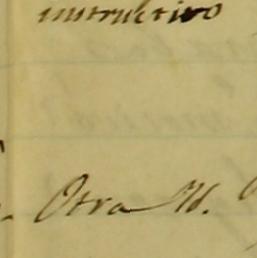 instruktivo
Otra M.